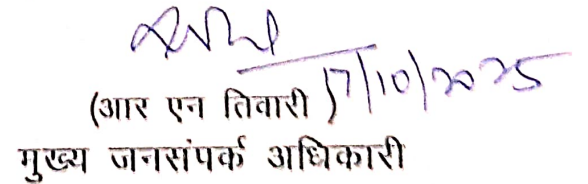 17/10/2025
(आर एन तिवारी)
मुख्य जनसंपर्क अधिकारी